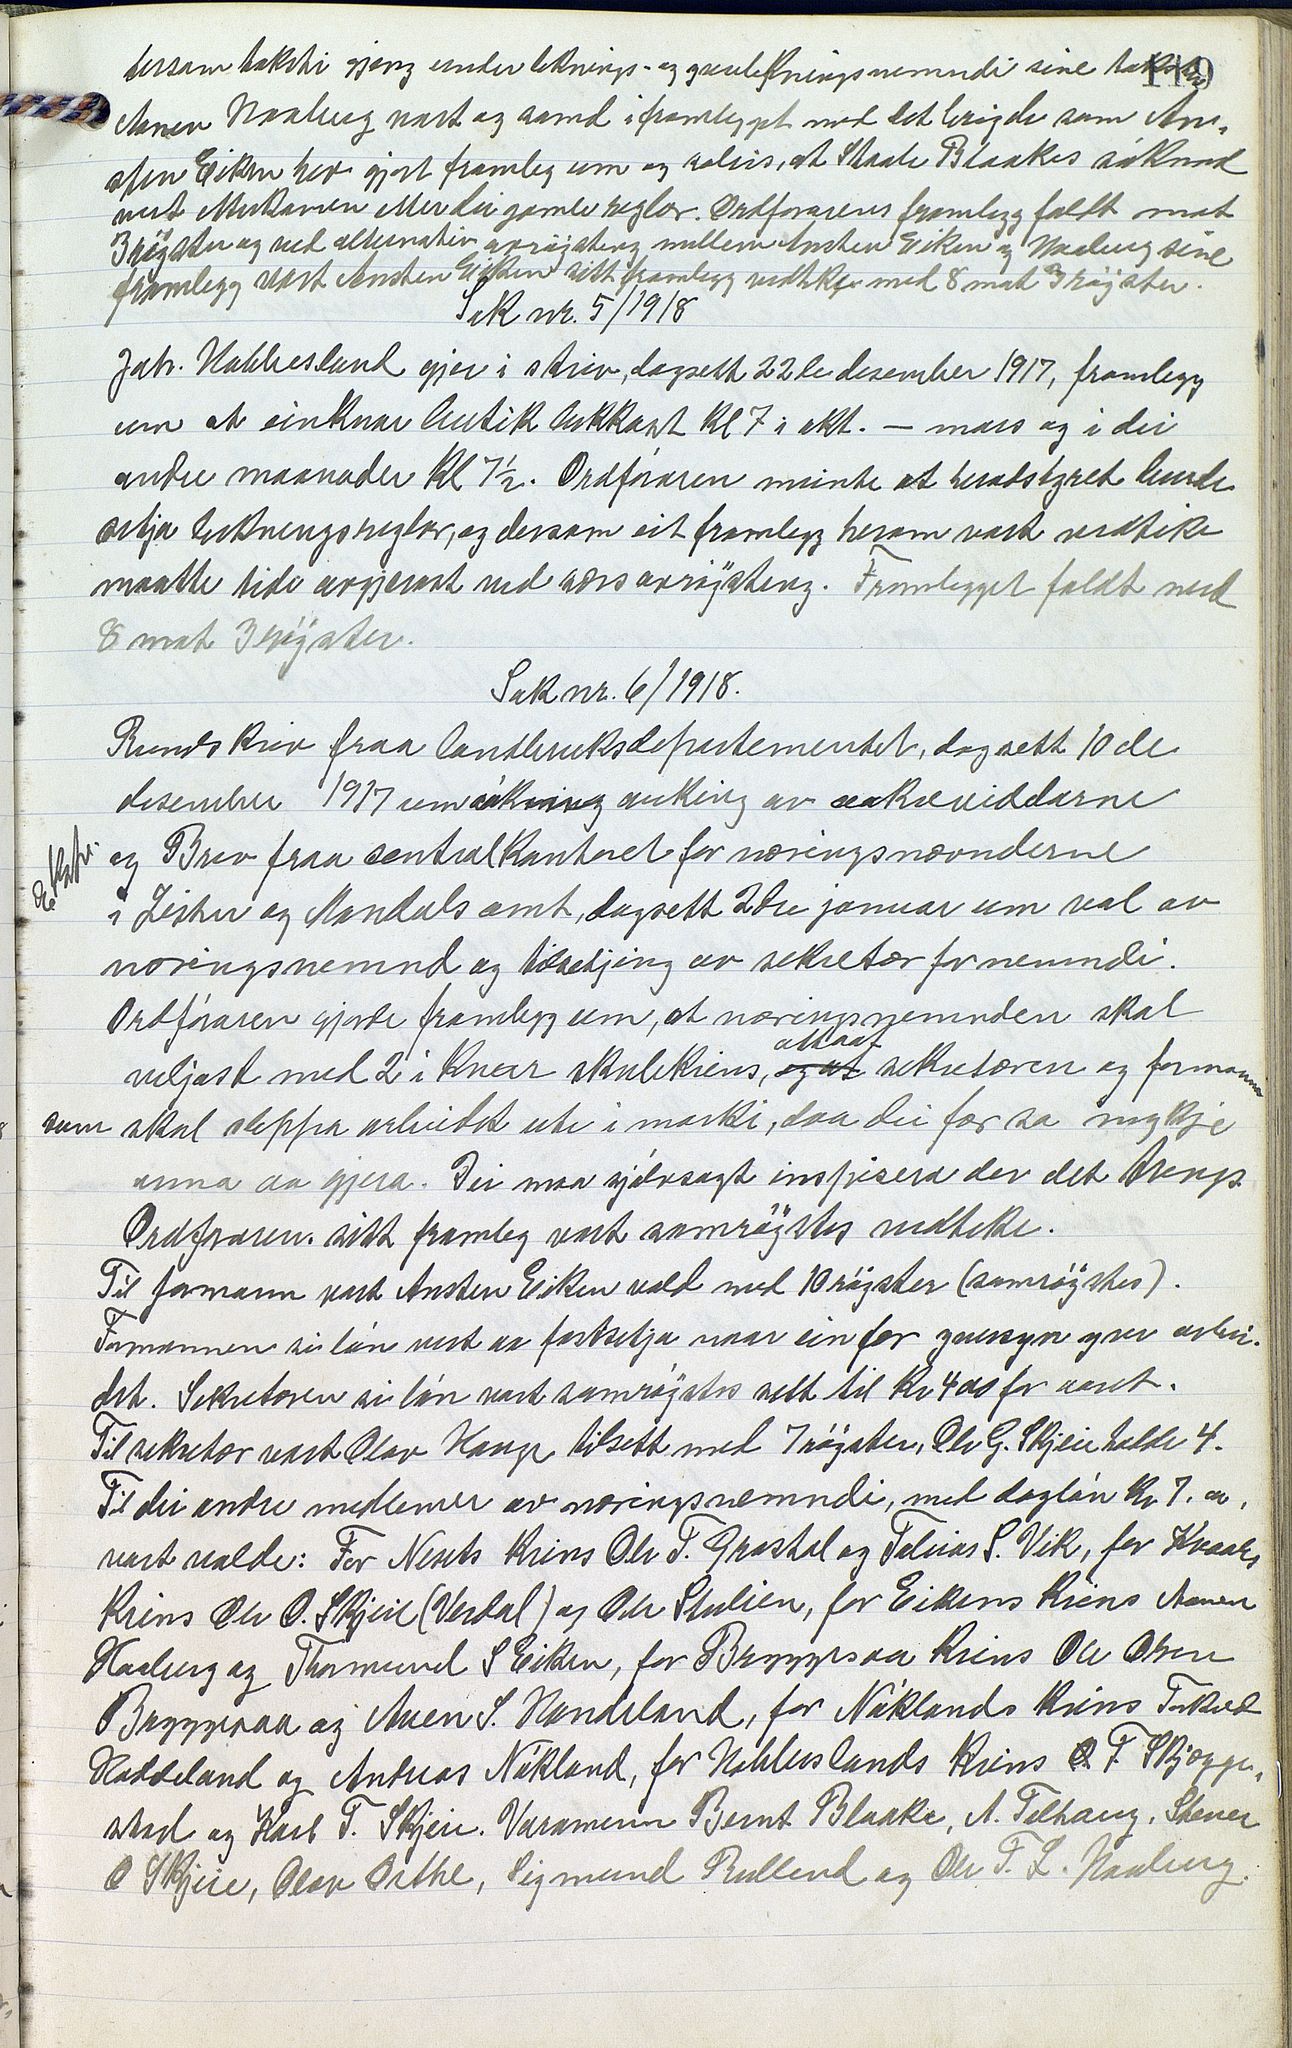 119
dersom taksti gjeng under liknings- og yverlikningsnemndi sine takster
Aanen Haaberg vart og samd i framlegget med det brigde som An-
sten Eiken hev gjort framlegg um og soleis, at Staale Blaakes søknad
vert etter dei gamle reglar. Ordførarens framlegg faldt mot
3 røyster og ved alternativ avrøysting millom Ansten Eiken og Haaberg sine
framlegg vart Ansten Eiken sitt framlegg vedteke med 8 mot 3 røyster.
Sak nr. 5/1918
Joh. Hobbesland gjer i skriv, dagsett 22de desember 1917, framlegg
um at einkvar butik lukkast kl 7 i okt. – mars og i dei
andre maanader kl 7½. Ordføraren meinte at heradstyret burde
setja lukningsreglar, og dersom eit framlegg herom vart vedteke
maatte tidi avgjerast ved særs avrøysting. Framlegget faldt med
8 mot 3 røyster.
Sak nr. 6/1918.
Rundskriv fraa landbruksdepartementet, dagsett 10de
desember 1917 um økning auking av aakreviddarne
og Brev fraa sentralkontoret for næringsnævnderne
i Lister og Mandals amt, dagsett 2dre januar um val av
næringsnemnd og tilsetjing av sekretær for nemndi.
Ordføraren gjorde framlegg um, at næringsnemnden skal
attaat
veljast med 2 i kvar skulekrins, og at sekretæren og formannen
som skal sleppa arbeidet ute i marki, daa dei fær so mykje
anna aa gjera. Dei maa sjølvsagt inspisera der det trengs.
Ordføraren sitt framlegg vart samrøystes vedteke.
Til formann vart Ansten Eiken vald med 10 røyster (samrøystes).
Formannen si løn vert aa fastsetja naar ein fær yversyn yver arbei-
det. Sekretæren si løn vart samrøystes sett til kr 400 for aaret.
Til sekretær vart Olav Hauge tilsett med 7 røyster, Ole G. Skjeie hadde 4.
Til dei andre medlemer av næringsnemndi, med dagløn kr 7.00,
vart valde: For Nesets krins Ole T. Frøstøl og Tobias S. Vik, for Kvaas
krins Ole O. Skjeie (Verdal) og Ole Stulien, for Eikens krins Aanen
Haaberg og Thormund S Eiken, for Bryggesaa krins Ole Olsen
Bryggesaa og Aanen S. Handeland, for Nøklands krins Torkel
Haddeland og Andreas Nøkland, for Hobbeslands krins O. T. Skjegge-
stad og Karl T. Skjeie. Varamenn Bernt Blaake, A. Telhaug, Stener
O Skjeie, Olav Østhe, Sigmund Rulland og Ole T. L. Haaberg.